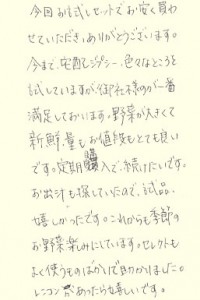 今回お試しセットでお安く買わ
せていただき、ありがとうございます。
今まで、安酉乙ジジー、色々なところを
試していますが御社様のが一番
満足しております。野菜が大きくて
新鮮、量もお値段もとても良い
です。定期購入で、続けたいです。
お出汁も探していたので、試品
嬉しかったです。これからも季節の
お野菜楽しみにしています。セレクトも
よく使うものばかりで助かりました。
レンコンがあったら嬉しいです。